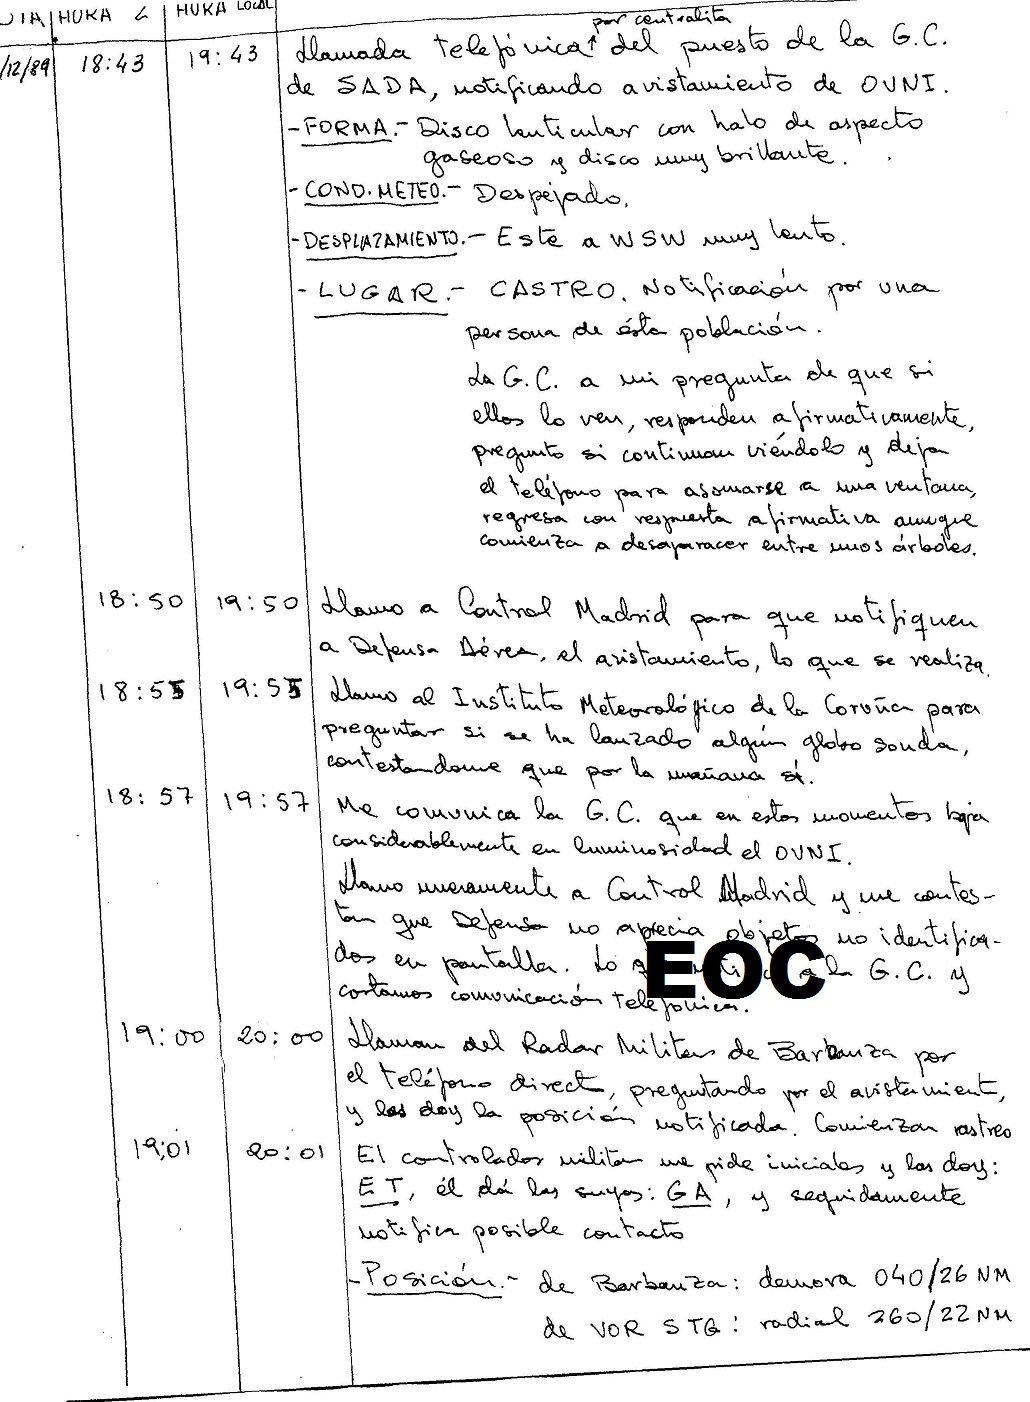 DIA HORA Z HORA LOCAL
por centralita
/12/89 18:43 19:43 Llamada telefónica del puesto de la G.C.
de SADA, notificando avistamiento de OVNI.
-FORMA.- Disco lenticular con halo de aspecto
gaseoso y disco muy brillante.
-COND.METEO.- Despejado.
-DESPLAZAMIENTO.- Este a WSW muy lento.
-LUGAR.- CASTRO. Notificación por una
persona de ésta población.
La G.C. a mi pregunta de que si
ellos lo ven, responden afirmativamente,
pregunto si continuan viéndolo y deja
el teléfono para asomarse a una ventana,
regresa con respuesta afirmativa aunque
comienza a desaparacer entre unos árboles.
18:50 19:50 Llamo a Control Madrid para que notifiquen
a Defensa Aérea, el avistamiento, lo que se realiza.
18:55 19:55 Llamo al Instituto Meteorológico de la Coruña para
preguntar si se ha lanzado algún globo sonda,
contestandome que por la mañana sí.
18:57 19:57 Me comunica la G.C. que en estos momentos baja
considerablemente en luminosidad el OVNI.
Llamo nuevamente a Control Madrid y me contes-
tan que Defensa no aprecia objetos no identifica-
dos en pantalla. Lo a la G.C. y
EOC
cortamos comunicación telefónica.
19:00 20:00 Llaman del Radar Militar de Barbanza por
el teléfono direct, preguntando por el avistamient,
y les doy la posición notificada. Comienzan rastreo
19:01 20:01 El controlador militar me pide iniciales y las doy:
ET, él dá las suyas: GA, y seguidamente
notifica posible contacto
-Posición.- de Barbanza: demora 040/26 NM
de VOR STG: radial 260/22NM